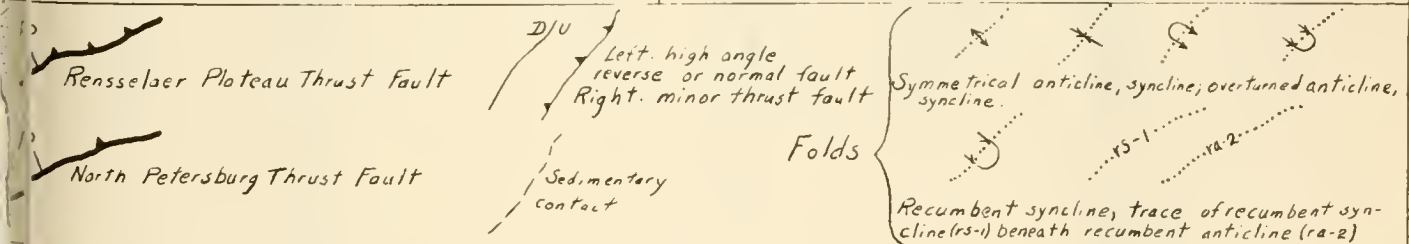 Rensselaer Plateau Thrust Fault
North Petersburg Thrust Fault
D/U
Left. high angle
reverse or normal fault
Right. minor thrust fault
Sedimentary
contact
Folds
Symmetrical anticline, syncline; overturned anticline,
syncline.
rs-1
ra-2
Recumbent syncline, trace of recumbent syn-
cline (rs-1) beneath recumbent anticline (ra-2)